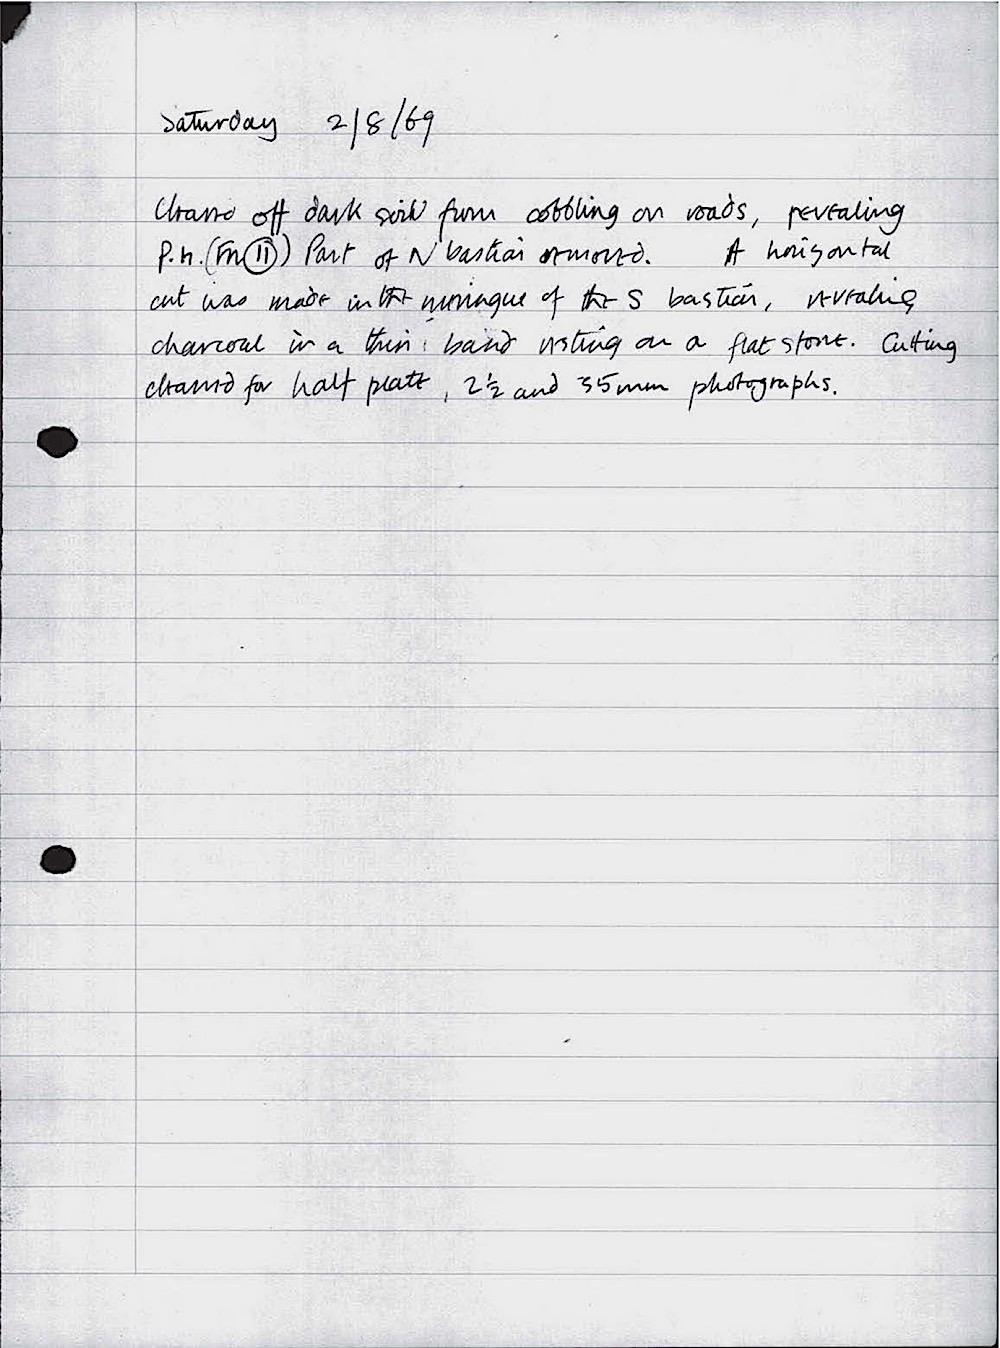 Saturday 2/8/69
Cleaned off dark soil from cobbling on roads, revealing
P.h. (Fn 11) Part of N bastion removed. A horizontal
cut was made in the meringue of the S bastion, revealing
charcoal in a thin band resting on a flat stone. Cutting
cleaned for half plate, 2½ and 35mm photographs.